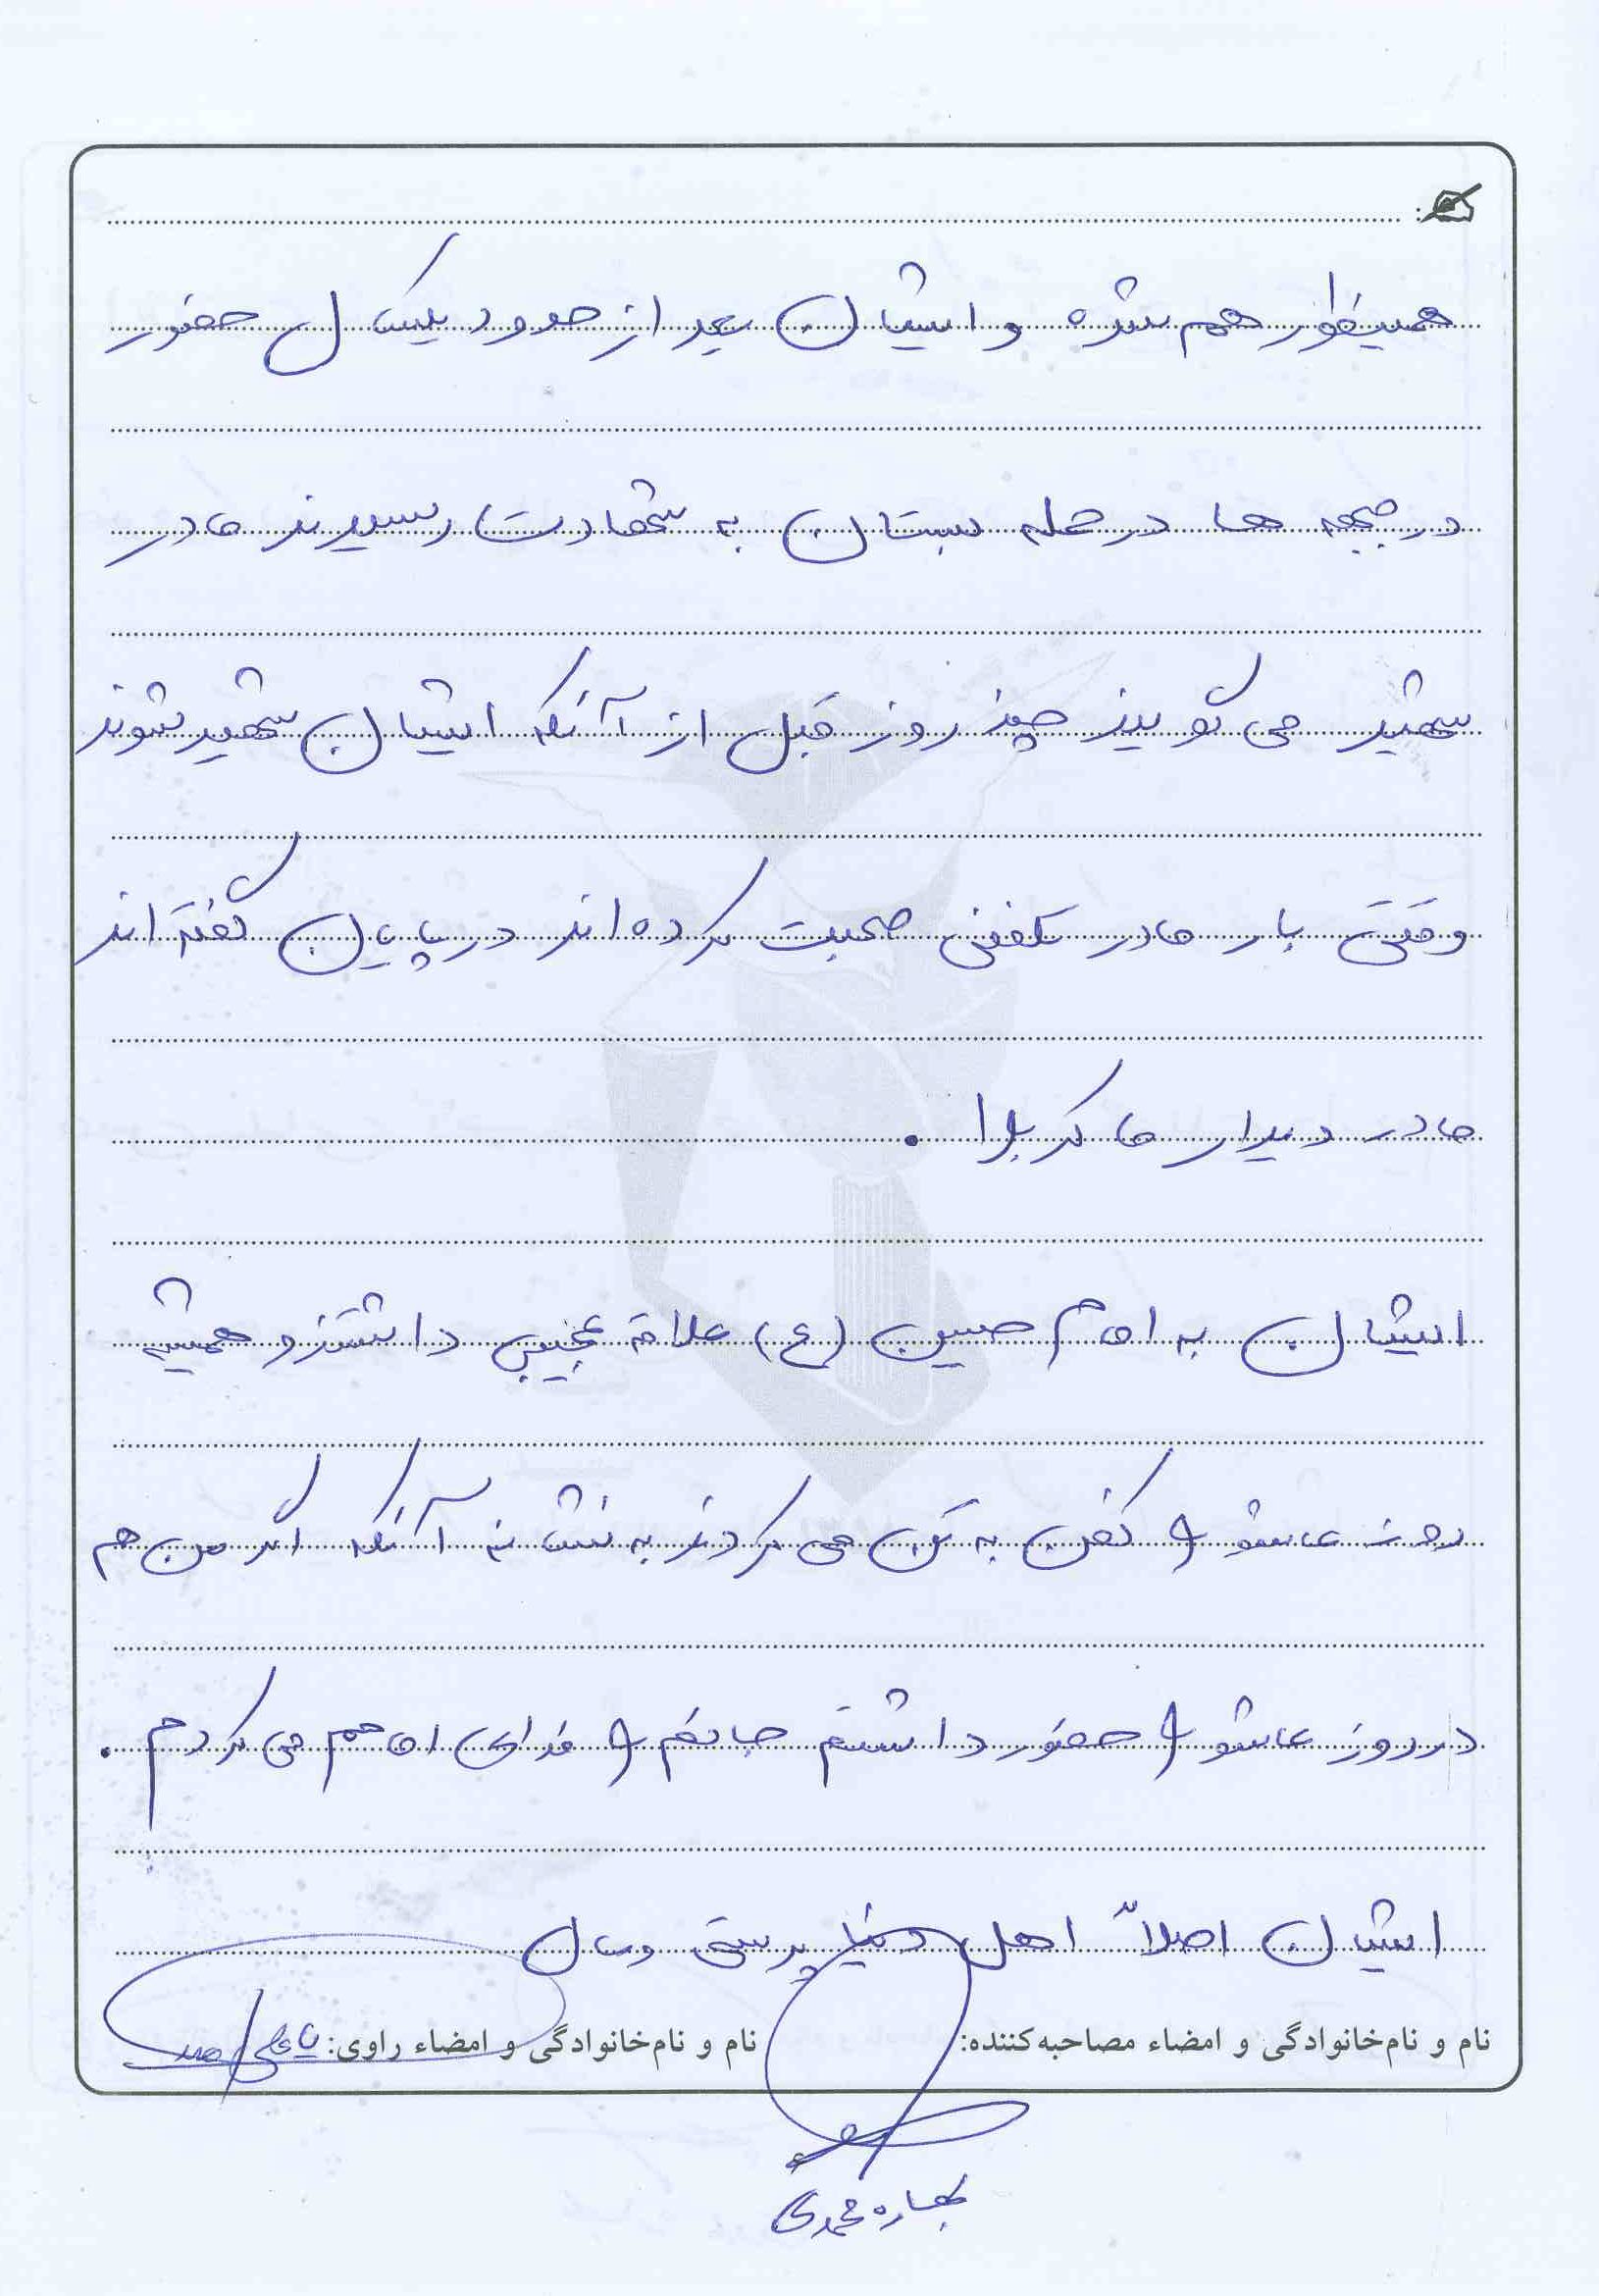 همینطور هم شده و ایشان بعد از حدود یکسال حضور
در جبهه ها در حمله بستان به شهادت رسیدند مادر
شهید می گویند چند روز قبل از آنکه ایشان شهید شوند
وقتی با مادر تلفنی صحبت کرده اند در پایان گفته اند
مادر دیدار ما کربلا .
ایشان به امام حسین (ع) علاقه عجیبی داشتند و همیشه
روز عاشورا کفن به تن می کردند به نشانه آنکه اگر من هم
در روز عاشورا حضور داشتم جانم را فدای امامم می کردم .
ایشان اصلاً اهل دنیا پرستی و مال
نام و نام‌خانوادگی و امضاء مصاحبه‌کننده: نام و نام‌خانوادگی و امضاء راوی:
بهاره محمدی